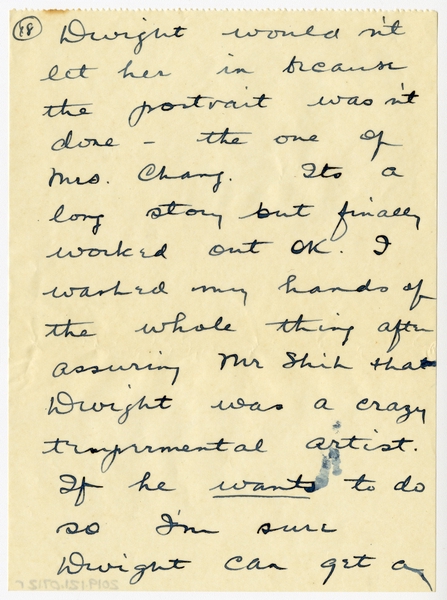 38
Dwight would n't
let her in because
the portrait was n't
done - the one of
Mrs. Chang. Its a
long story but finally
worked out OK. I
washed my hands of
the whole thing after
assuring Mr Shih that
Dwight was a crazy
tempermental artist.
If he wants to do
so I'm sure
Dwight can get a